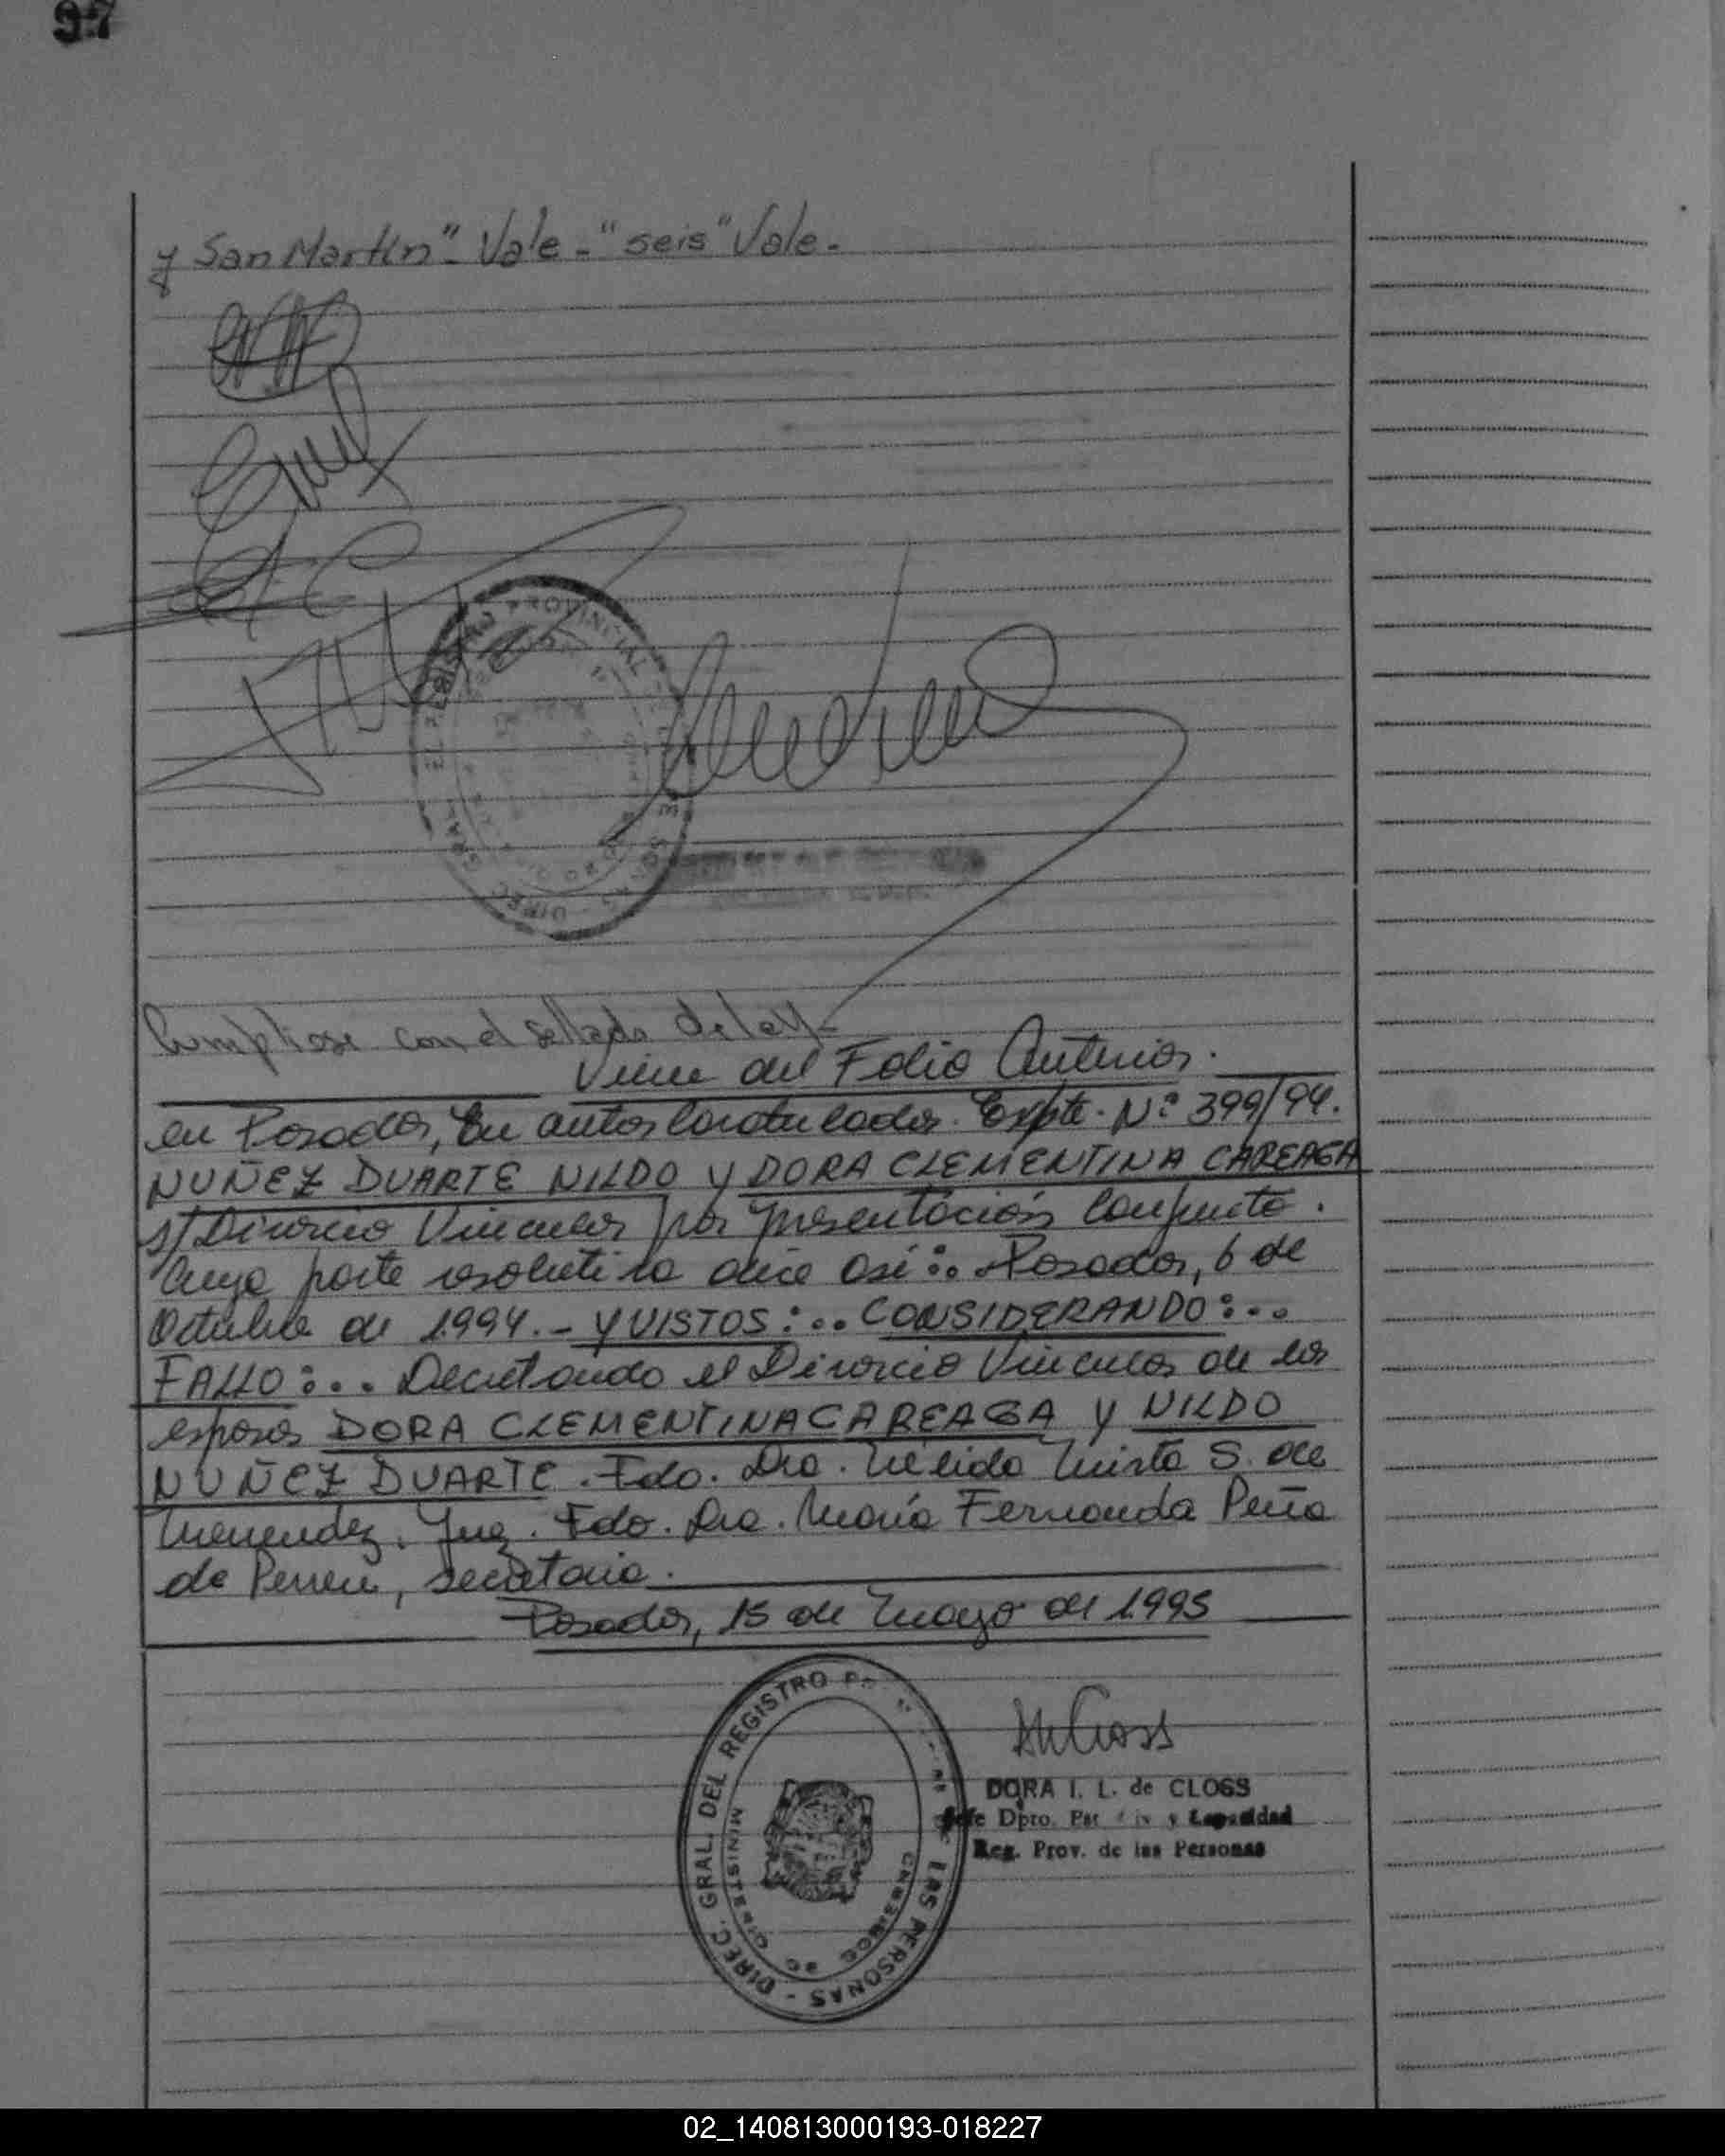 97
y San Martín" - Vale - "seis" Vale -
REGISTRO PROVINCIAL
DIREC. GRAL
Cumpliose con el sellado de ley -
Viene del Folio Anterior.
en Posadas, En autos Caratulados. Expte. Nº 399/94.
NUÑEZ DUARTE NILDO y DORA CLEMENTINA CAREAGA
s/ Divorcio Vincular por presentación Conjunta.
Cuya parte resolutiva dice así:. Posadas, 6 de
Octubre de 1994. - Y VISTOS:.. CONSIDERANDO:..
FALLO:... Decretando el Divorcio Vincular de los
esposos DORA CLEMENTINA CAREAGA y NILDO
NUÑEZ DUARTE. Fdo. Dra. Mirta S. de
Menendez. Juez. Fdo. Dra. María Fernanda Peña
de Perrou, Secretaria.
Posadas, 15 de Mayo de 1995
DIREC. GRAL. DEL REGISTRO LAS PERSONAS -
MINISTERIO DE GOBIERNO
DORA I. L. de CLOSS
Jefe Dpto. y Capacidad
Reg. Prov. de las Personas
02_140813000193-018227